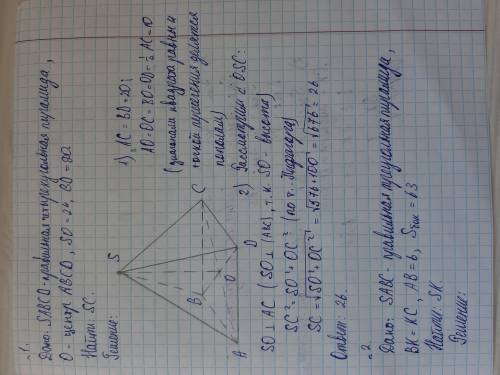 №1.
Дано: SABCD - правильная четырехугольная пирамида,
O - центр ABCD, SO = 24, BD = 20.
Найти: SC.
Решение:
S
B
C
A
O
D
1) AC = BD = 20;
AO = OC = BO = OD = ½ AC = 10
(диагонали квадрата равны и
точкой пересечения делятся
пополам)
2) Рассмотрим △ OSC:
SO ⊥ AC (SO ⊥ (ABC), т.к. SO - высота)
SC² = SO² + OC² (по т. Пифагора)
SC = √SO² + OC² = √576 + 100 = √676 = 26
Ответ: 26.
№2
Дано: SABC - правильная треугольная пирамида,
BK = KC, AB = 6, Sбок = 63
Найти: SK.
Решение: